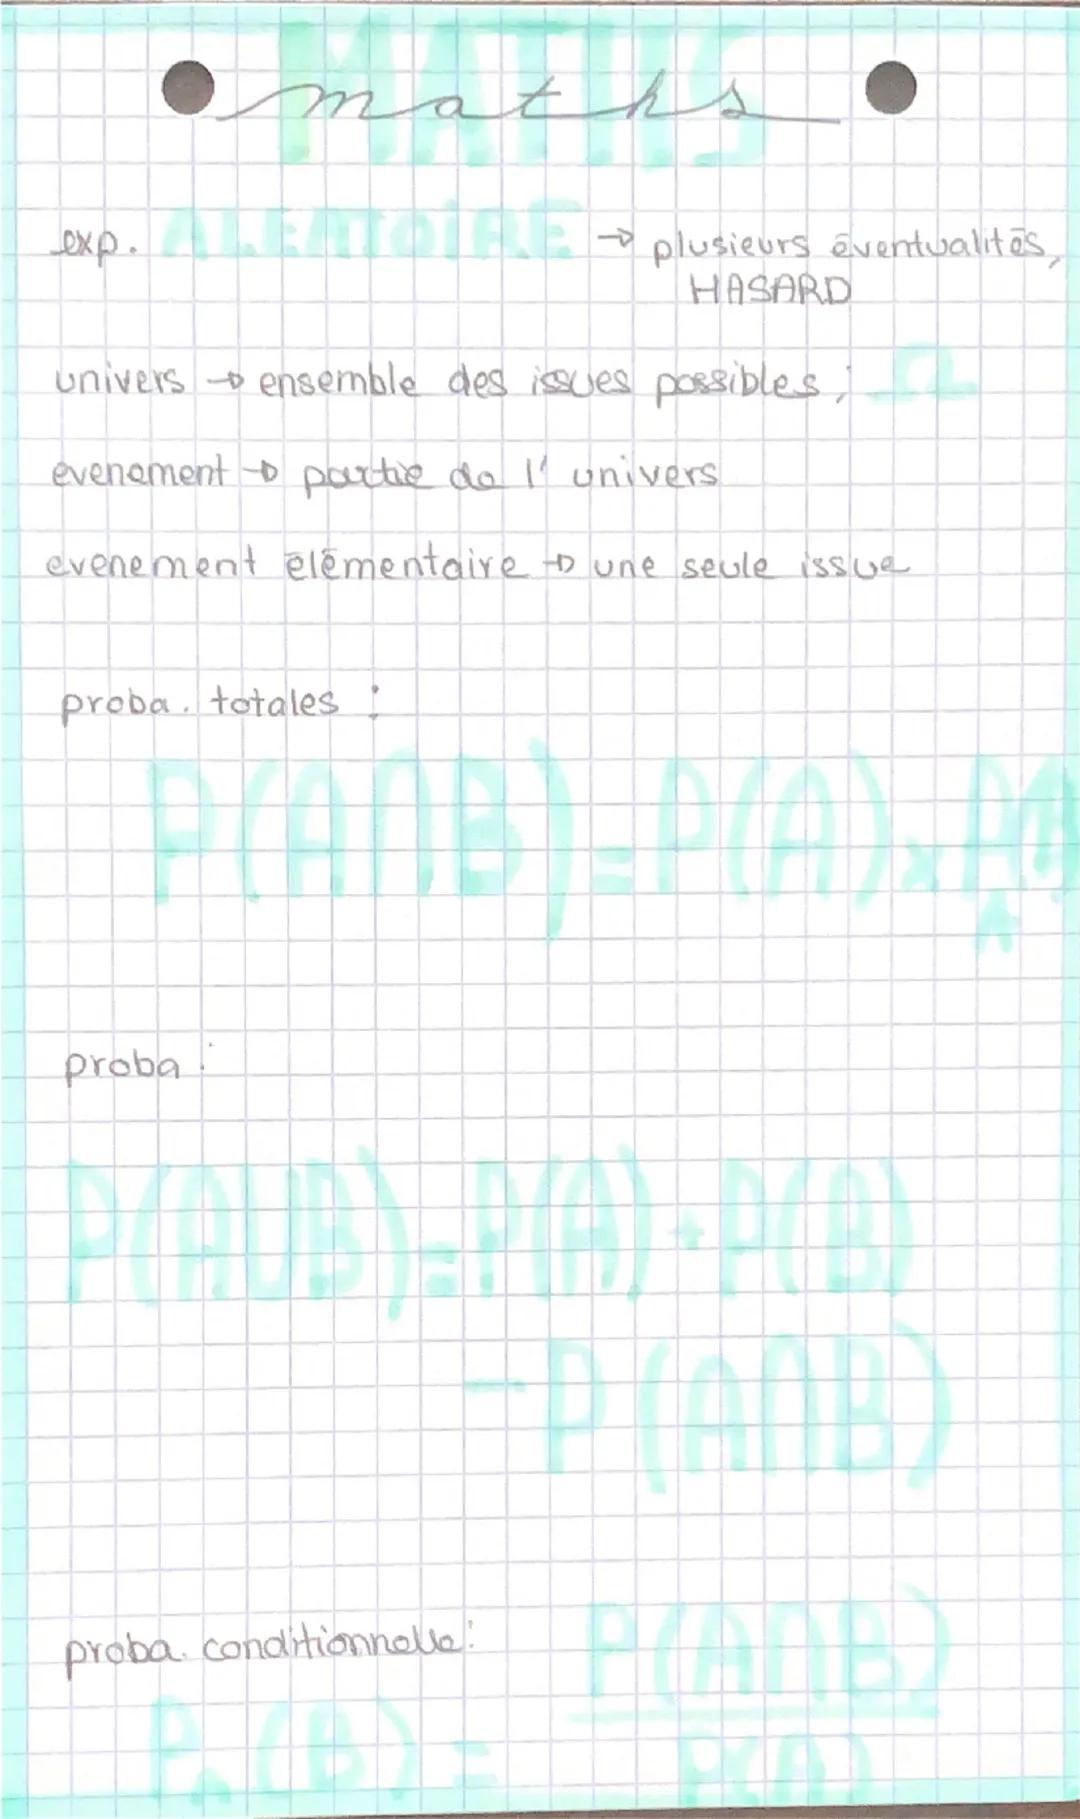 MATHS
maths
exp. ALEATOIRE → plusieurs éventualités,
HASARD
univers → ensemble des issues possibles ; Ω
evenement → partie de l' univers
evenement élémentaire → une seule issue
proba. totales :
P(A∩B)=P(A)×P
A
proba :
P(A∪B)=P(A)+P(B)
-P(A∩B)
proba. conditionnelle : P(A∩B)
P_A(B) = P(A)